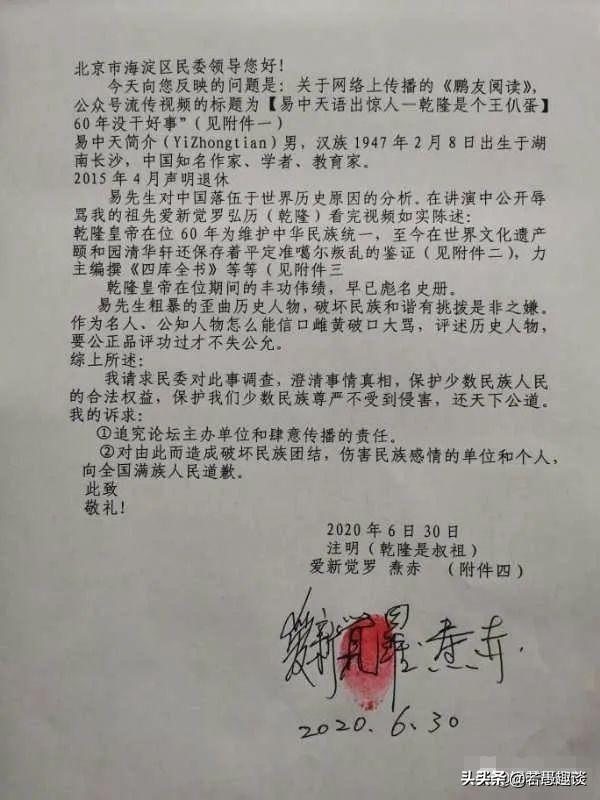 北京市海淀区民委领导您好！
今天向您反映的问题是：关于网络上传播的《鹏友阅读》，
公众号流传视频的标题为【易中天语出惊人—乾隆是个王仈蛋】
60年没干好事"（见附件一）
易中天简介（YiZhongtian）男，汉族1947年2月8日出生于湖
南长沙，中国知名作家、学者、教育家。
2015年4月声明退休
易先生对中国落伍于世界历史原因的分析。在讲演中公开辱
骂我的祖先爱新觉罗弘历（乾隆）看完视频如实陈述：
乾隆皇帝在位60年为维护中华民族统一，至今在世界文化遗产
颐和园清华轩还保存着平定准噶尔叛乱的鉴证（见附件二），力
主编撰《四库全书》等等（见附件三
乾隆皇帝在位期间的丰功伟绩，早已彪名史册。
易先生粗暴的歪曲历史人物，破坏民族和谐有挑拨是非之嫌。
作为名人、公知人物怎么能信口雌黄破口大骂，评述历史人物，
要公正品评功过才不失公允。
综上所述：
我请求民委对此事调查，澄清事情真相，保护少数民族人民
的合法权益，保护我们少数民族尊严不受到侵害，还天下公道。
我的诉求：
①追究论坛主办单位和肆意传播的责任。
②对由此而造成破坏民族团结，伤害民族感情的单位和个人，
向全国满族人民道歉。
此致
敬礼！
2020年6日30日
注明（乾隆是叔祖）
爱新觉罗 焘赤 （附件四）
爱新觉罗·焘赤.
2020.6.30
头条@若愚趣谈